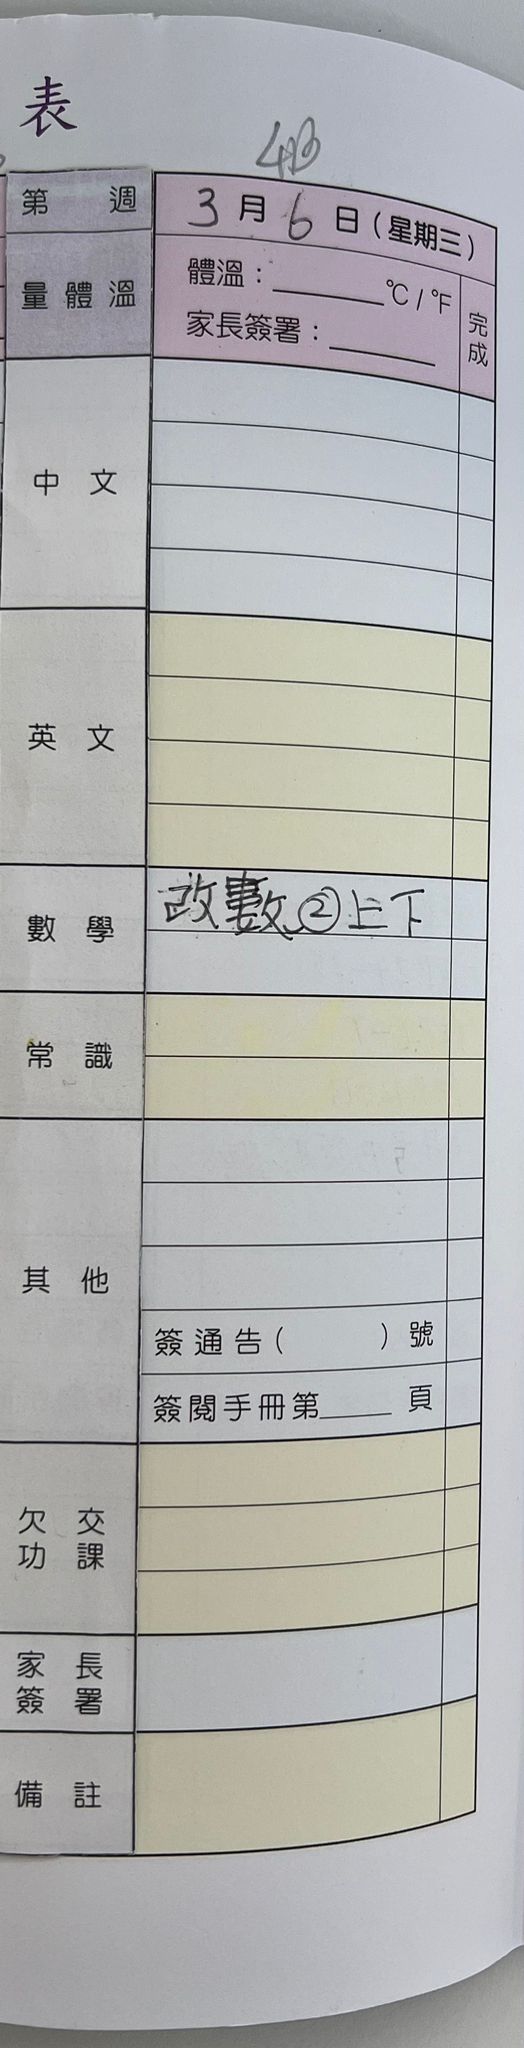 表
4B
第 週
3月6日(星期三)
量體溫
體溫:______°C/°F
家長簽署:______
完成
中文
英文
數學
改數②上下
常識
其他
簽通告( )號
簽閱手冊第____頁
欠交
功課
家長
簽署
備註